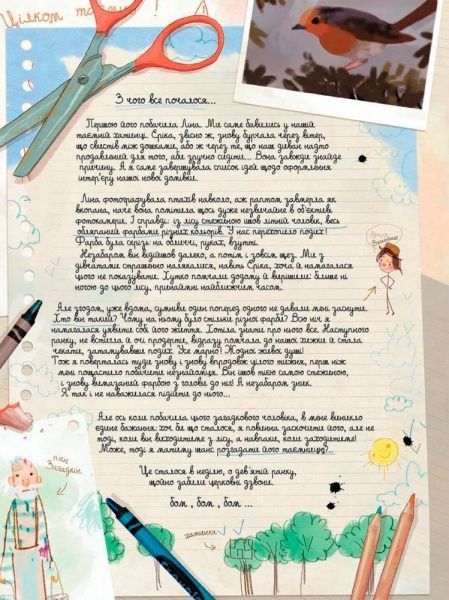 Цілком та
З чого все почалося...
Першою його побачила Ліна. Ми саме бавились у нашій
таємній хатинці. Єріка, звісно ж, знову бурчала через вітер,
що свистів між дошками, або ж через те, що наш диван надто
продавлений для того, аби зручно сидіти... Вона завжди знайде
причину. А я саме завершувала список ідей щодо оформлення
інтер'єру нашої нової домівки.
Ліна фотографувала птахів навколо, аж раптом завмерла як
вкопана, наче вона помітила щось дуже незвичайне в об'єктиві
фотокамери. І справді: із лісу стежиною йшов літній чоловік, весь
обляпаний фарбами різних кольорів. У нас перехопило подих!
Фарба була скрізь: на обличчі, руках, взутті.
Незабаром він відійшов далеко, а потім і зовсім щез. Ми з
дівчатами страшенно налякалися, навіть Єріка, хоча й намагалася
цього не показувати. Хутко помчали додому й вирішили: більше ні
ногою до цього лісу, принаймні найближчим часом.
Але згодом, уже вдома, сумніви один поперед одного не давали мені заснути.
Хто він такий? Чому на ньому було стільки різної фарби? Всю ніч я
намагалася уявити собі його життя. Хотіла знати про нього все. Наступного
ранку, не встигла й очі продерти, відразу помчала до нашої хижки й стала
чекати, затамувавши подих. Усе марно! Жодної живої душі!
Тож я поверталась туди знову і знову впродовж цілого тижня, перш ніж
мені пощастило побачити незнайомця. Він ішов тією самою стежиною,
і знову вимазаний фарбою з голови до ніг! А незабаром зник.
Я так і не наважилася підійти до нього...
Але ось коли побачила цього загадкового чоловіка, в мене виникло
єдине бажання: хоч би що сталося, я повинна заскочити його, але не
тоді, коли він виходитиме з лісу, а навпаки, коли заходитиме!
Може, тоді я матиму шанс розгадати його таємницю!..
Це сталося в неділю, о дев'ятій ранку,
щойно забили церковні дзвони.
бом, бом, бом...
пан
Загадкін
хатинка